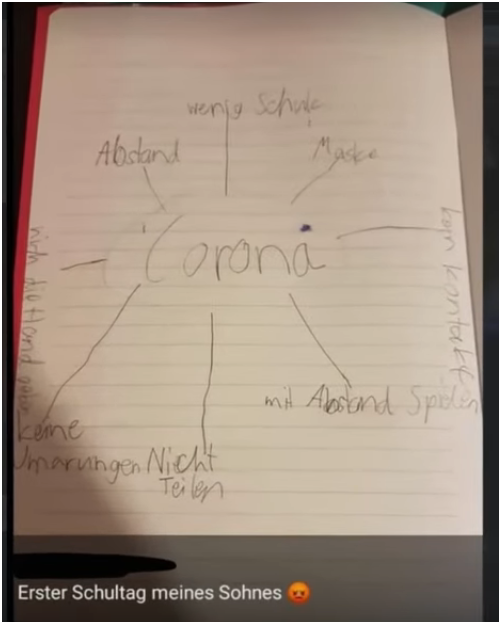 wenig Schule
Abstand
Maske
Corona
kein kontakt
nich die Hand geben
mit Abstand Spielen
keine
Umarungen
Nicht
Teilen
Erster Schultag meines Sohnes 😡